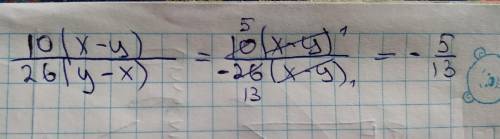 10(x-y)/26(y-x) = 5 10(x-y) 1/-26(x-y) 1 13 = - 5/13